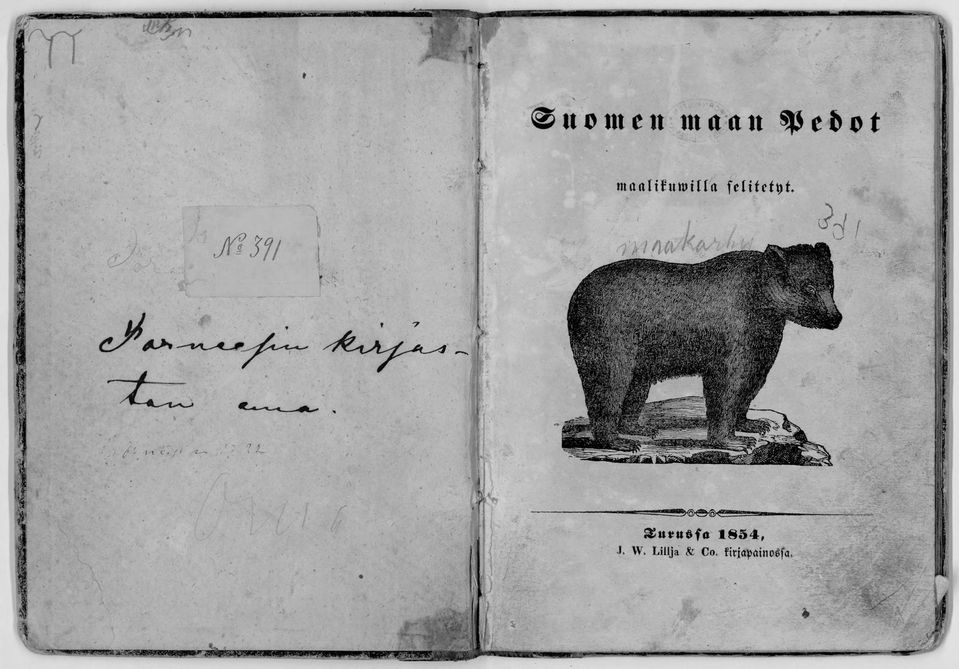 № 391
kirjas-
tan oma.
Suomen maan Pedot
maalikuwilla selitetyt.
maakarhu
391
Turussa 1854,
J. W. Lillja & Co. kirjapainossa.